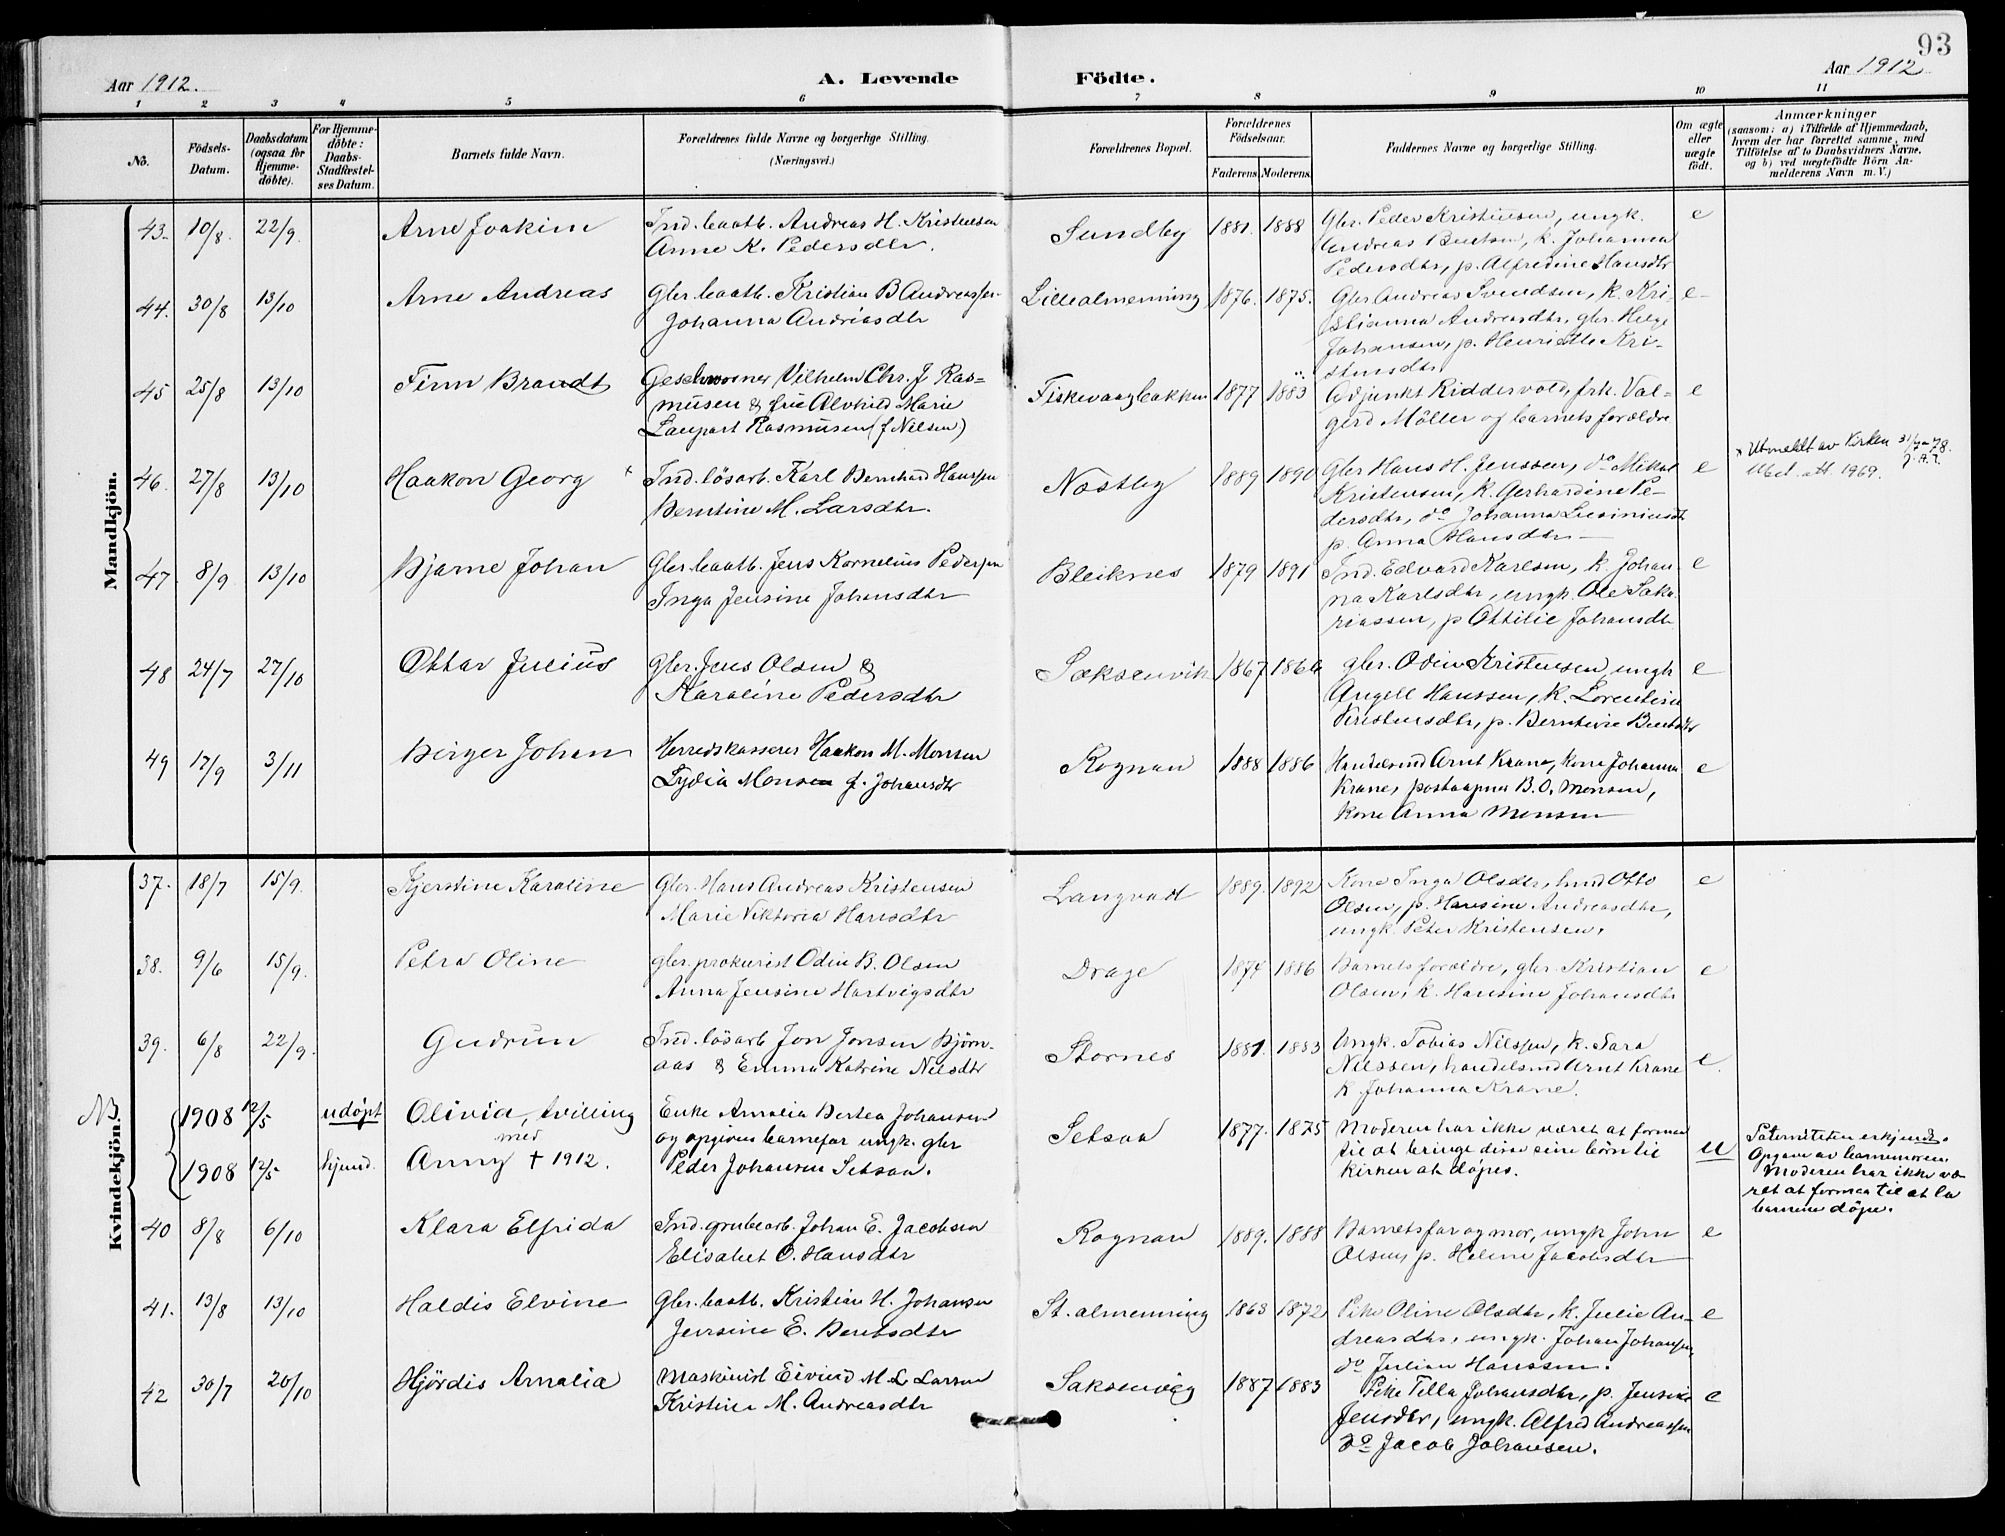 93
Aar 1912.
A. Levende
Födte.
Aar 1912
1 2 3 4 5 6 7 8 9 10 11
No.
Födsels-
Datum.
Daabsdatum
(ogsaa for
Hjemme-
döbte).
For Hjemme-
döbte:
Daabs-
Stadfæstel-
ses Datum.
Barnets fulde Navn.
Forældrenes fulde Navne og borgerlige Stilling.
(Næringsvei.)
Forældrenes Bopæl.
Forældrenes
Födselsaar.
Faderens. Moderens.
Faddernes Navne og borgerlige Stilling.
Om ægte
eller
uægte
födt.
Anmærkninger
(saasom: a) i Tilfælde af Hjemmedaab,
hvem der har forrettet samme, med
Tilföielse af to Daabsvidners Navne,
og b) ved uægtefödte Börn An-
melderens Navn m. V.)
Mandkjön.
43. 10/8. 22/9. Arne Joakim
Ind. baatb. Andreas H. Kristensen
Anne K. Pedersdtr.
Sundby 1881. 1888
Gbr. Peder Kristensen, ungk.
Andreas Bentsen, k. Johanna
Pedersdtr, p. Alfredine Hansdtr
e
44. 30/8 13/10 Arne Andreas
Gbr. baatb. Kristian B Andreassen
Johanna Andreasdtr
Lillealmenning 1876. 1875.
Gbr. Andreas Svendsen, k. Kri-
stianna Andreasdtr, gbr. Helge
Johansen, p. Henriette Kri-
stensdtr
e
45 25/8 13/10 Finn Brandt
Geschworner Vilhelm Chr. J Ras-
musen & frue Alvhild Marie
Laupart Rasmusen (f Nilsen)
Fiskevaagbakken 1877 1883
Adjunkt Riddervold, frk. Val-
gerd Möller og barnets forældre
e
46. 27/8 13/10 Haakon Georg x
Ind. lösarb. Karl Bernhard Hanssen
Berntine M. Larsdtr.
Næstby 1889 1890
Gbr Hans H. Jenssen, do Mikal
Kristensen, k. Gerhardine Pe-
dersdtr, do Johanna
p. Anna Hansdtr
e
x Utmeldt av kirken 31/ 78.
att. 1969.
47. 8/9. 13/10 Bjarne Johan
Gbr. baatb. Jens Kornelius Pedersen
Inga Jensine Johansdtr
Bleiknes 1879 1891
Ind. Edvard Karlsen, k. Johan-
na Karlsdtr, ungk. Ole Saka-
riassen, p Ottilie Johansdtr.
e
48 24/7 27/10 Ottar Julius
Gbr. Jens Olsen &
Karoline Pedersdtr
Saksenvik 1867 1866
gbr. Odin Kristensen, ungk
Angell Hanssen, k. Lorentine
Kristensdtr, p. Berntine Bentsdtr
e
49 17/9 3/11 Birger Johan
Herredskasserer Haakon M. Monsen
Lydia Monsen f. Johansdtr
Rognan 1888 1886
Handelsmd Arnt Krane, Kone Johanna
Krane, postaapner B. O. Monsen,
Kone Anna Monsen
e
Kvindekjön.
37. 18/7 15/9. Kjerstine Karoline
Gbr. Hans Andreas Kristensen
Marie Viktoria Hansdtr
Langvad 1889. 1892
Kone Inga Olsdtr, hmd Otto
Olsen, p. Hansine Andreasdtr,
ungk. Peter Kristensen.
e
38. 9/6 15/9. Petra Oline
gbr. prokurist Odin B. Olsen
Anna Jensine Hartvigsdtr
Drage 1874 1886
Barnets forældre, gbr. Kristian
Olsen, k. Hansine Johansdtr
e
39. 6/8 22/9. Gudrun
Ind. lösarb Jon Jonsen Björn-
aas & Emma Katrine Nilsdtr
Stornes 1881. 1883
Ungk. Tobias Nilssen, k. Sara
Nilssen, handelsmd Arnt Krane
k. Johanna Krane.
e.
NB. 1908 12/5 udöpt Olivia, tvilling
med
1908 12/5 hjemd. Anny † 1912.
Enke Amalia Bertea Johansen
og opgiven barnefar ungk. gbr
Peder Johansen Setsaa.
Setsaa 1877. 1875
Moderen har ikke været at formaa
til at bringe disse sine börn til
kirken at døpes.
u
Paterniteten erkjendt.
Opgave av barnemoren.
Moderen har ikke væ-
ret at formaa til at la
barnene döpe.
40 8/8 6/10 Klara Elfrida
Ind. grubearb. Johan E. Jacobsen
Elisabet O. Hansdtr
Rognan 1889. 1888
Barnets far og mor, ungk John
Olsen, p. Heline Jacobsdtr
e
41. 13/8 13/10 Haldis Elvine
Gbr. baatb. Kristian H. Johansen
Jensine E. Bentsdtr
St. almenning 1868 1872
Pike Oline Olsdtr, k. Julie An-
dreasdtr, ungk. Johan Johansen,
do Julian Hanssen.
e
42 30/7 20/10 Hjørdis Amalia
Maskinist Eivind M. L. Larsen
Kristine M. Andreasdtr
Saksenvig 1887 1883
Pike Tilla Johansdtr, p. Jensine
Jensdtr, ungk. Alfred Andreassen
do Jacob Johansen.
e